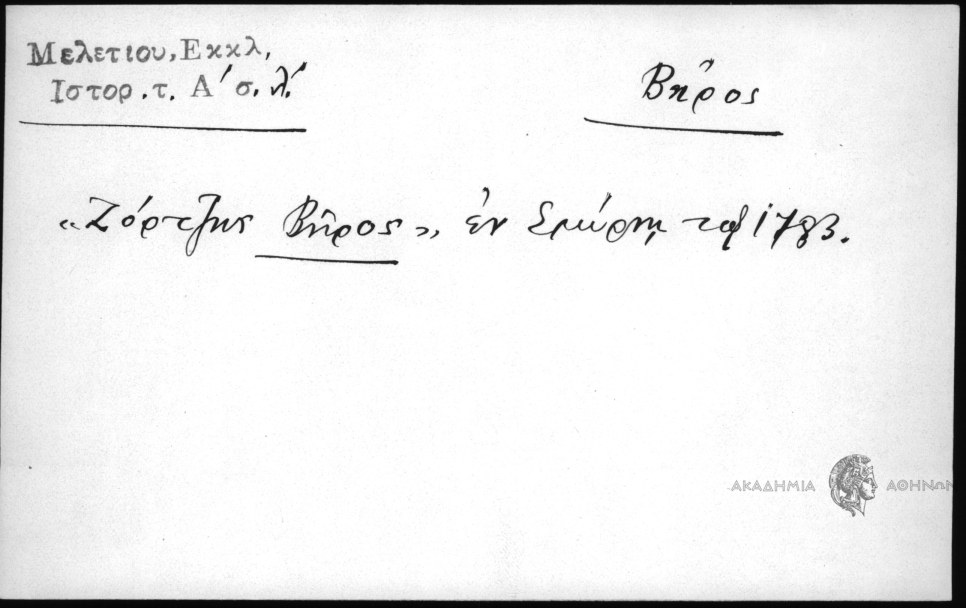 Μελετίου, Εκκλ,
Ιστορ.τ. Α΄ σ. λ΄.
Βῆρος
«Ζόρτζης Βῆρος», ἐν Σμύρνῃ τῷ 1783.
ΑΚΑΔΗΜΙΑ ΑΘΗΝΩΝ